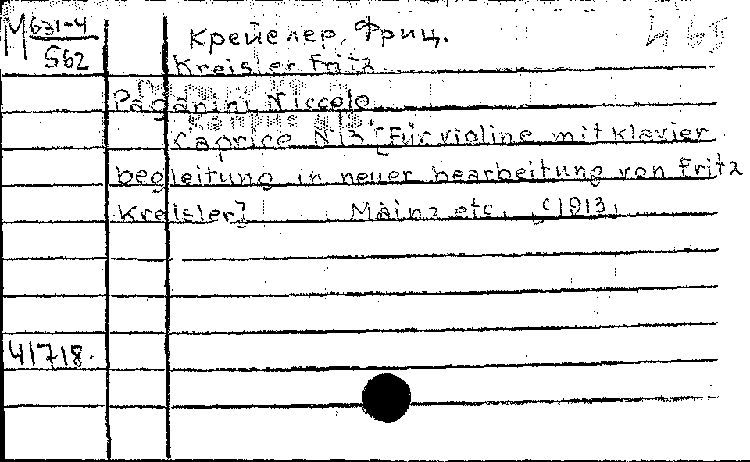 M 631-4
562
Крейслер, Фриц.
Kreisler Fritz
Paganini Niccolo
Caprice N13 [Für violine mit klavier
begleitung in neuer bearbeitung von Fritz
Kreisler] Mainz etc., c1913.
41718.